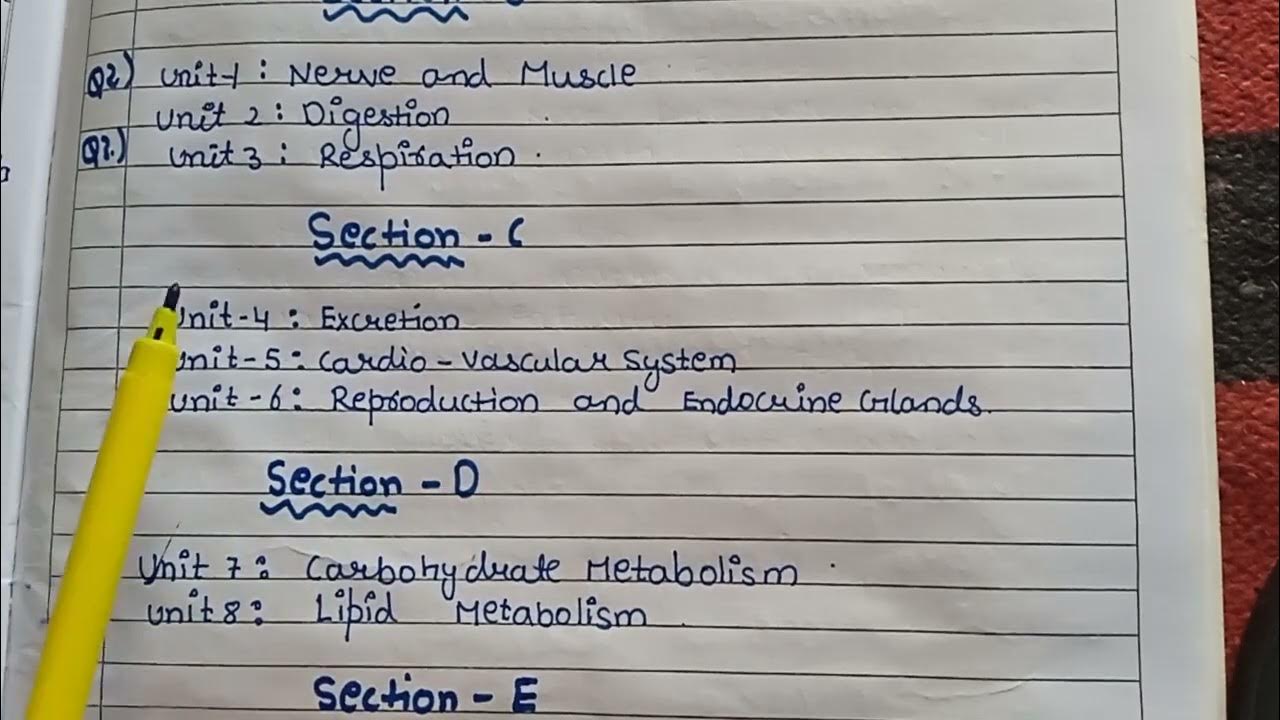 Q2) Unit-1 : Nerve and Muscle
Unit 2 : Digestion
Q1.) Unit 3 : Respiration .
Section - C
Unit-4 : Excretion
Unit-5 : Cardio-Vascular System
Unit-6 : Reproduction and Endocrine Glands.
Section - D
Unit 7 : Carbohydrate Metabolism .
Unit 8 : Lipid Metabolism .
Section - E